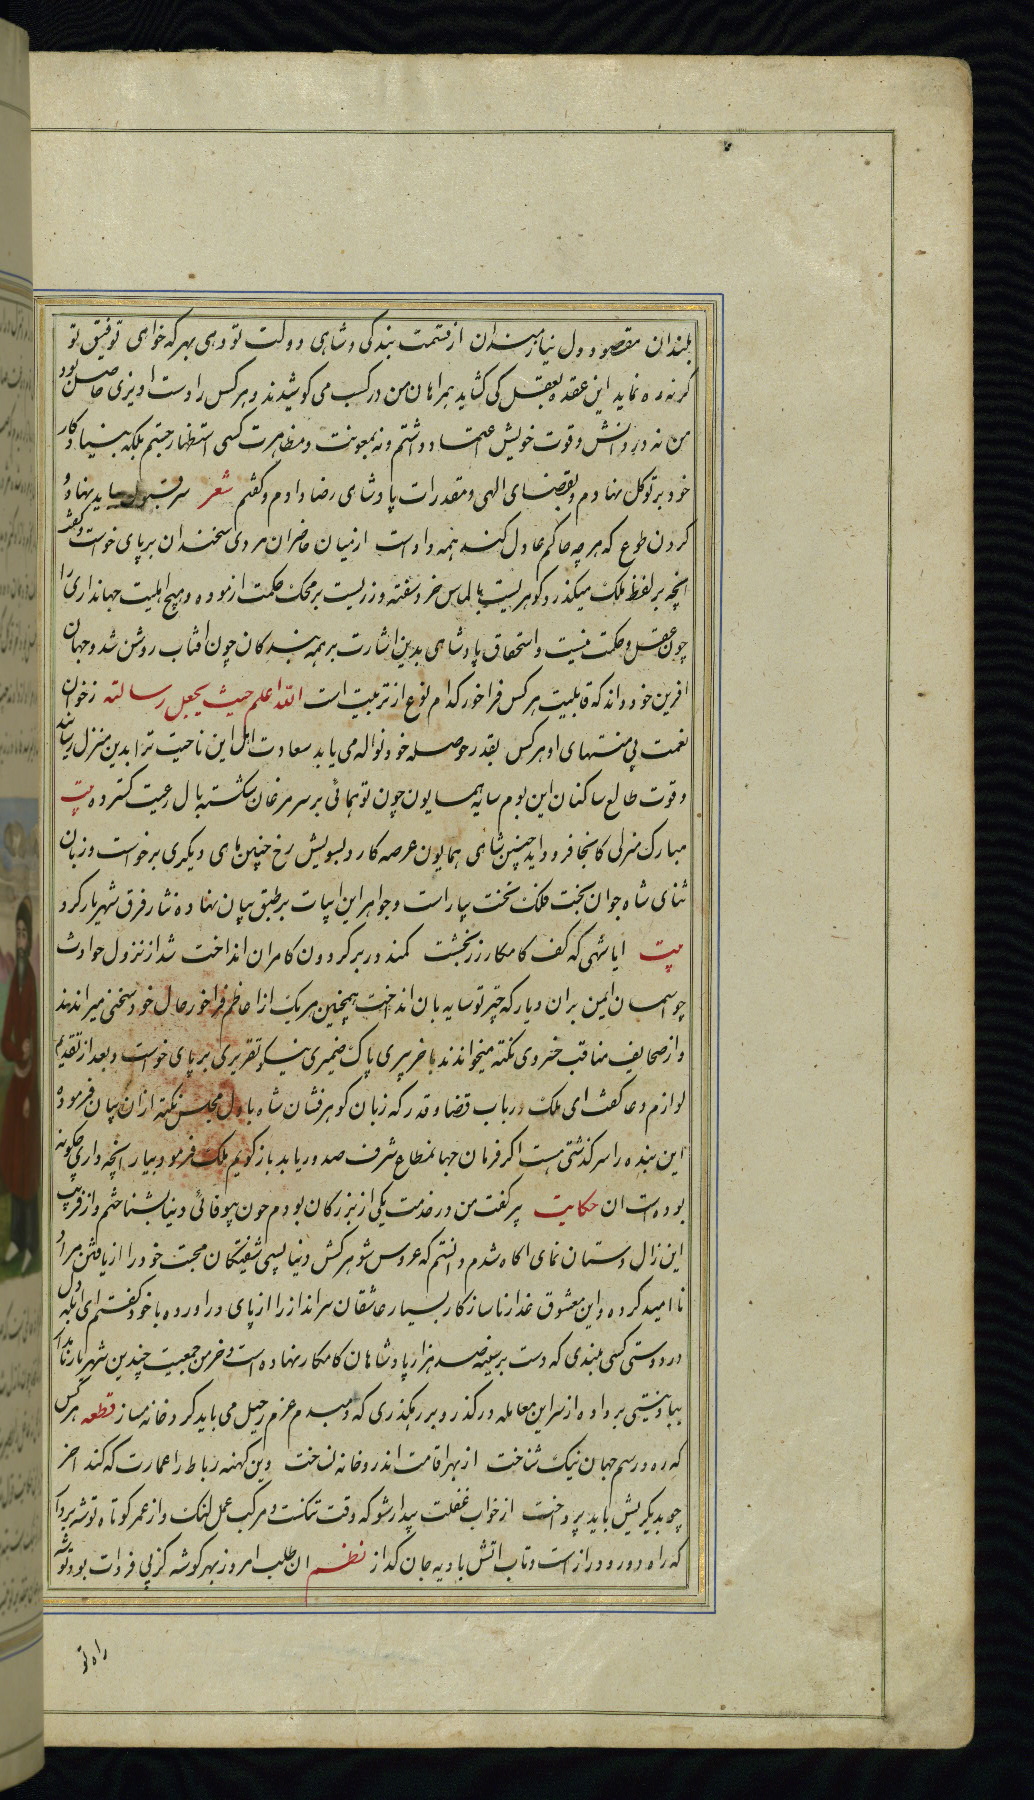 بلندان مقصود دل نیازمندان از قسمت بندگی و شاهی دولت تو دهی بهر که خواهی توفیق تو
گر نه ره نماید این عقده بعقل کی گشاید همراهان من در کسب می کوشیدند و هر کس را دست اویزی حاصل بود
من نه در دانش و قوت خویش اعتماد داشتم و نه بمعونت و مظاهرت کسی استظهار جستم بلکه بنیاد کار
خود بر توکل نهادم و بقضای الهی و مقدرات پادشاهی رضا دادم و گفتم شعر سر قبول بباید نهاد و
گردن طوع که هر چه حاکم عادل کند همه داد است از میان حاضران مردی سخندان بر پای خواست و گفت
انچه بر لفظ ملک میگذرد گوهریست بالماس خرد سفته و زریست بر محک حکمت ازموده و هیچ اهلیت جهانداری را
چون عقل و حکمت نیست و استحقاق پادشاهی بدین اشارت بر همه بندگان چون افتاب روشن شد و جهان
افرین خود داند که قابلیت هر کس فراخور کدام نوع از تربیت است الله اعلم حیث یجعل رسالته ز خوان
نعمت بی منتهای او هر کس بقدر حوصله خود نواله می یابد سعادت اهل این ناحیت ترا بدین منزل رسانید
و قوت طالع ساکنان این بوم سایه همایون چون تو همائی بر سر مرغان شکسته بال رعیت گسترده بیت
مبارک منزلی کانجا فرود اید چنین شاهی همایون عرصه کارد بسویش رخ چنین ماهی دیگری برخواست و زبان
ثنای شاه جوان بخت فلک تخت بیاراست و جواهر این ابیات بر طبق بیان نهاده نثار فرق شهریار کرد
بیت ایا شهی که کف کامکار زربخشت کمند در بر گردون کامران انداخت شد از نزول حوادث
چو اسمان ایمن بران دیار که چتر تو سایه بان انداخت همچنین هر یک از اعاظم فراخور حال خود سخنی میراندند
و از صحایف مناقب خسروی نکته میخواندند باخر پیری پاک ضمیری نیکو تقریری بر پای خواست و بعد از تقدیم
لوازم دعا گفت ای ملک در باب قضا و قدر که زبان گوهرفشان شاه باهل مجلس نکته ازان بیان فرمود
این بنده را سرگذشتی هست اگر فرمان جهانمطاع شرف صدور یابد باز گویم ملک فرمود بیار انچه داری چگونه
بوده است ان حکایت پیر گفت من در خدمت یکی از بزرگان بودم چون بیوفائی دنیا بشناختم و از فریب
این زال دستان نمای اگاه شدم دانستم که عروس شوهرکش دنیا بسی شیفتگان محبت خود را از یافتن مراد
ناامید کرده و این معشوق غدار ناسازگار بسیار عاشقان سرانداز را از پای دراورده با خود گفتم ای ابله دل
در دوستی کسی بندی که دست بر سینه صد هزار پادشاهان کامکار نهاده است و خرمن جمعیت چندین شهریار نامدار
بباد نیستی برداده از سر این معامله درگذر و بر رهگذری که دمبدم عزم رحیل می باید کرد خانه مساز قطعه هر کس
که ره و رسم جهان نیک شناخت از بهر اقامت اندر و خانه نساخت وین کهنه رباط را عمارت که کند اخر
چو بدیگریش باید پرداخت از خواب غفلت بیدار شو که وقت تنگست و مرکب عمل لنگ و از عمر کوتاه توشه بردار
که راه دور و دراز است و تاب اتش بادیه جان گداز نظم ان طلب امروز بهر گوشه کز پی فردات بود توشه
راه تو